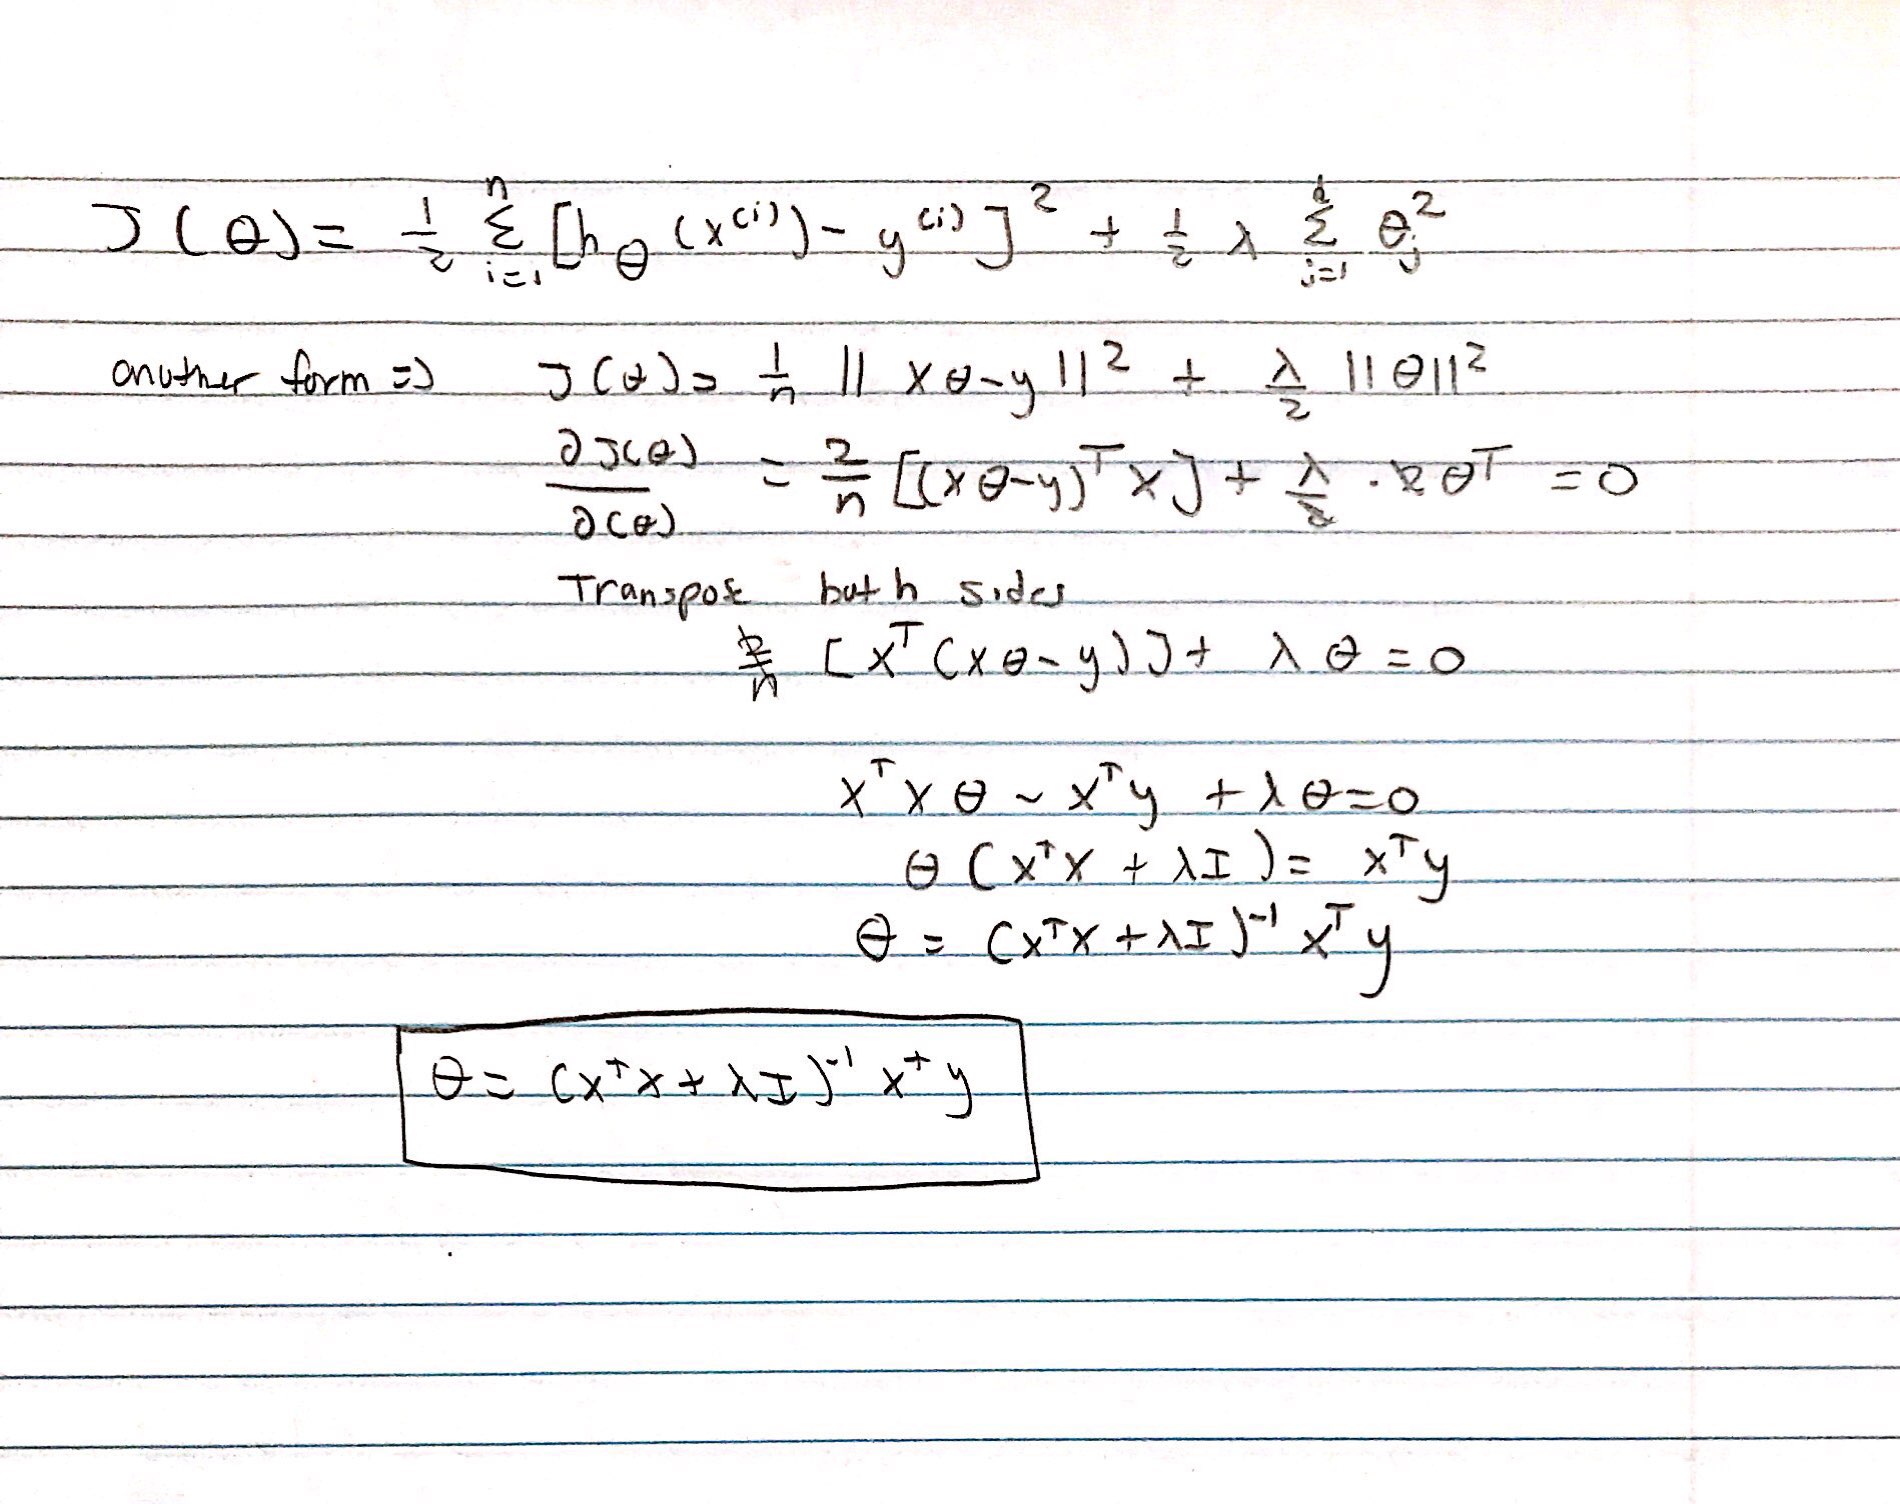 J(θ) = 1/2 Σ_{i=1}^{n} [h_θ(x^{(i)}) - y^{(i)}]^2 + 1/2 λ Σ_{j=1}^{d} θ_j^2
another form => J(θ) = 1/n ||xθ-y||^2 + λ/2 ||θ||^2
∂J(θ)/∂(θ) = 2/n [(xθ-y)^T x] + λ/2 · 2θ^T = 0
Transpose both sides
2/n [x^T(xθ-y)] + λθ = 0
x^T x θ - x^T y + λθ = 0
θ (x^T x + λI) = x^T y
θ = (x^T x + λI)^{-1} x^T y
θ = (x^T x + λI)^{-1} x^T y